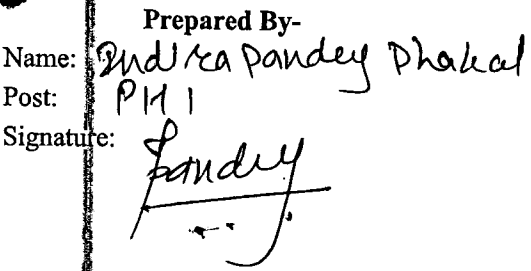 Prepared By-
Name: Indira Pandey Dhakal
Post: PHI
Signature: Pandey